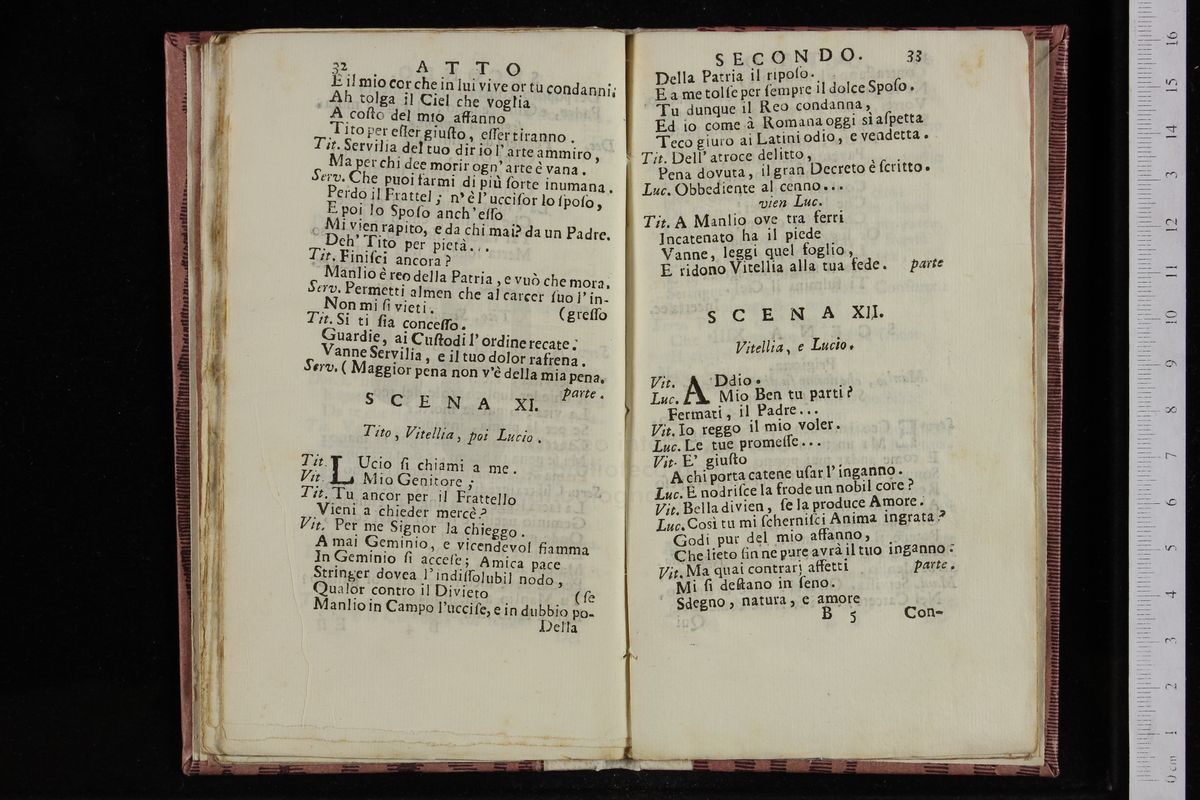 32 ATTO
E il mio cor che in lui vive or tu condanni;
Ah tolga il Ciel che voglia
A coſto del mio affanno
Tito per eſſer giuſto, eſſer tiranno.
Tit. Servilia del tuo dir io l'arte ammiro,
Ma per chi dee morir ogn'arte è vana.
Serv. Che puoi farmi di più ſorte inumana.
Perdo il Frattel; n'è l'ucciſor lo ſpoſo,
E poi lo Spoſo anch'eſſo
Mi vien rapito, e da chi mai? da un Padre.
Deh' Tito per pietà...
Tit. Finiſci ancora?
Manlio è reo della Patria, e vuò che mora.
Serv. Permetti almen che al carcer ſuo l'in-
Non mi ſi vieti. (greſſo
Tit. Si ti ſia conceſſo.
Guardie, ai Cuſtodi l'ordine recate.
Vanne Servilia, e il tuo dolor rafrena.
Serv. (Maggior pena non v'è della mia pena.
parte.
SCENA XI.
Tito, Vitellia, poi Lucio.
Tit. LUcio ſi chiami a me.
Vit. Mio Genitore;
Tit. Tu ancor per il Frattello
Vieni a chieder mercè?
Vit. Per me Signor la chieggo.
Amai Geminio, e vicendevol fiamma
In Geminio ſi acceſe; Amica pace
Stringer dovea l'indiſſolubil nodo,
Qualor contro il Divieto (ſe
Manlio in Campo l'ucciſe, e in dubbio po-
Della
SECONDO. 33
Della Patria il ripoſo.
E a me tolſe per ſempre il dolce Spoſo.
Tu dunque il Reo condanna,
Ed io come à Romana oggi si aſpetta
Teco giuro ai Latini odio, e vendetta.
Tit. Dell'atroce delitto,
Pena dovuta, il gran Decreto è ſcritto.
Luc. Obbediente al cenno...
vien Luc.
Tit. A Manlio ove tra ferri
Incatenato ha il piede
Vanne, leggi quel foglio,
E ridono Vitellia alla tua fede. parte
SCENA XII.
Vitellia, e Lucio.
Vit. ADdio.
Luc. Mio Ben tu parti?
Fermati, il Padre...
Vit. Io reggo il mio voler.
Luc. Le tue promeſſe...
Vit. E' giuſto
A chi porta catene uſar l'inganno.
Luc. E nodriſce la frode un nobil core?
Vit. Bella divien, ſe la produce Amore.
Luc. Così tu mi ſcherniſci Anima ingrata?
Godi pur del mio affanno,
Che lieto fin ne pure avrà il tuo inganno.
Vit. Ma quai contrarj affetti parte.
Mi ſi deſtano in ſeno.
Sdegno, natura, e amore
B 5 Con-
0 cm 1 2 3 4 5 6 7 8 9 10 11 12 13 14 15 16